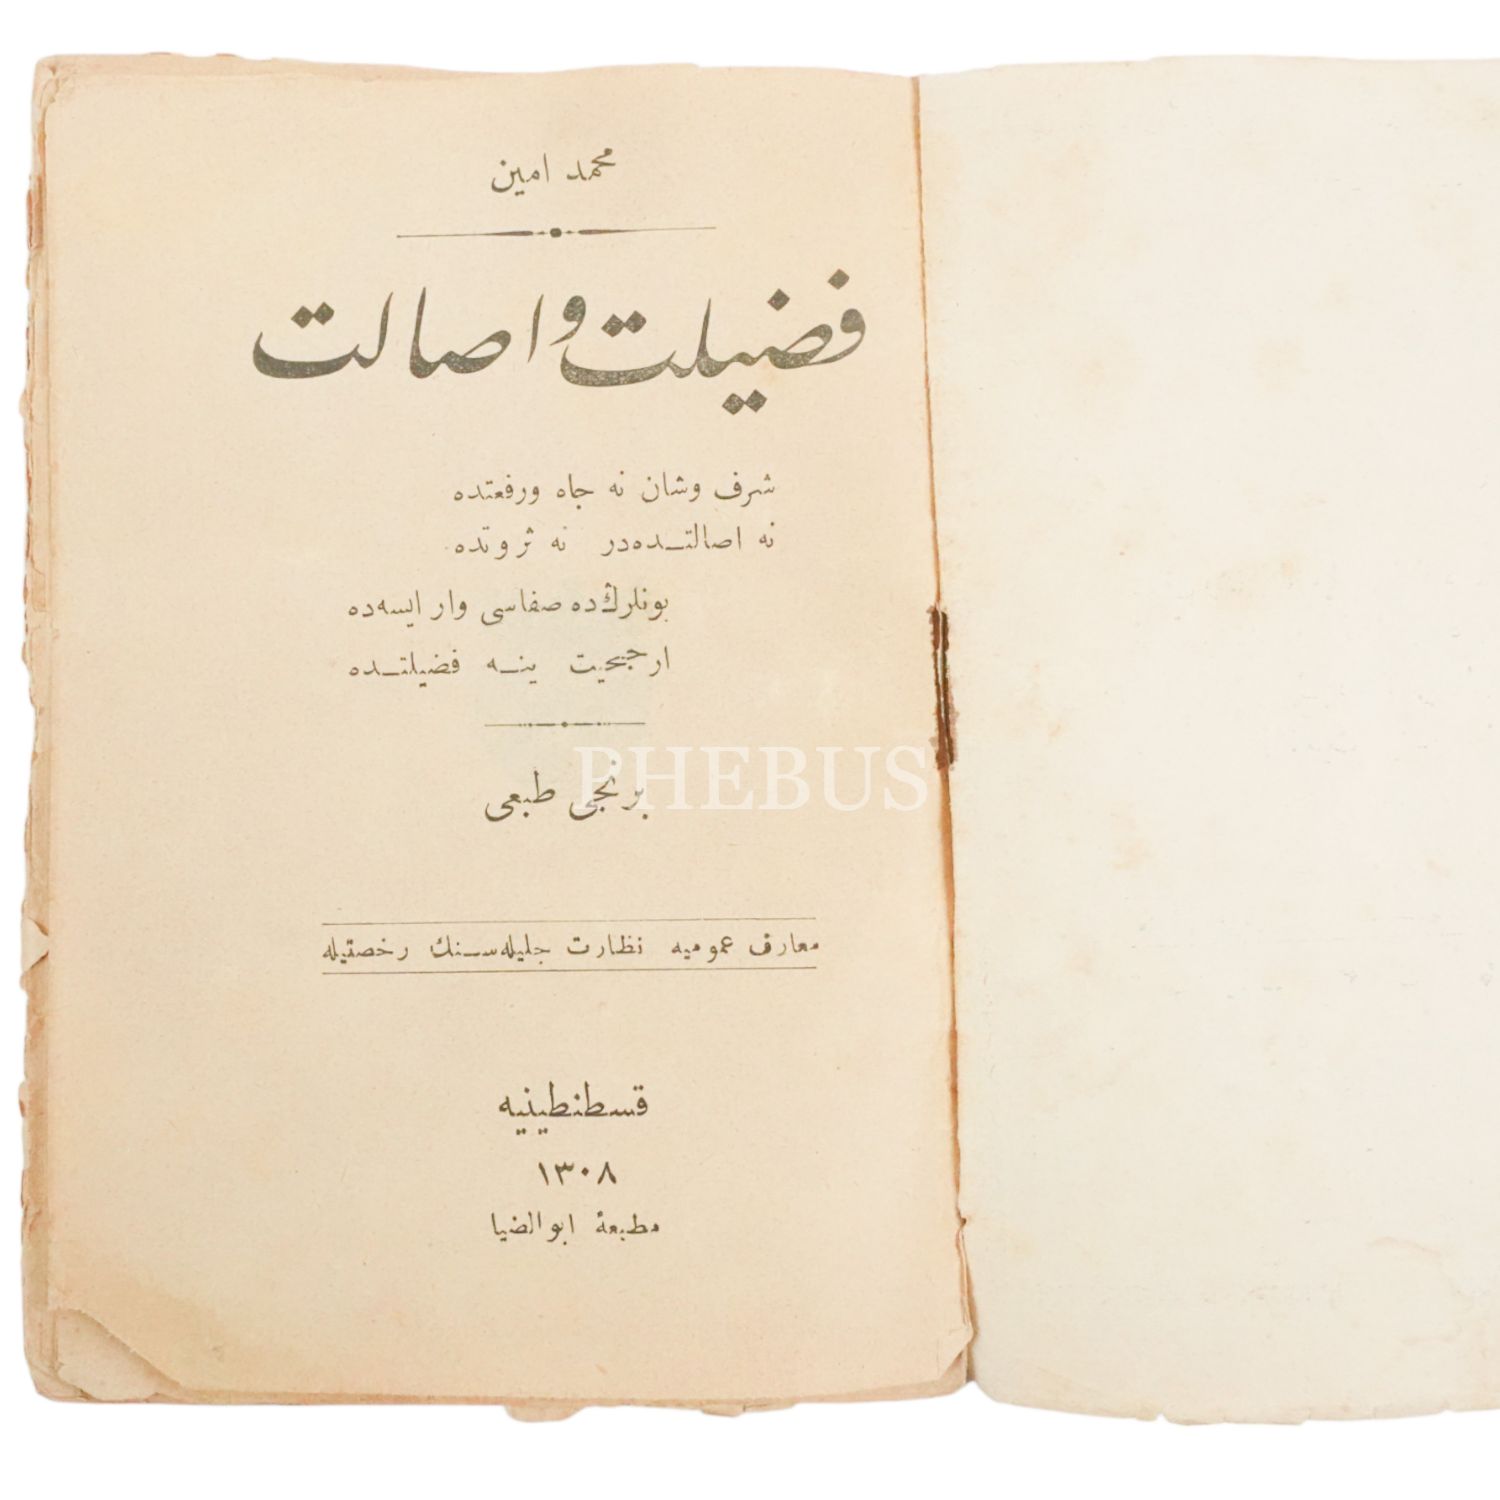 محمد امین
فضیلت و اصالت
شرف وشان نه جاه ورفعتده
نه اصالتــده‌در نه ثروتده
بونلرڭده صفاسی وار ایسه‌ده
ارجحیت ینــه فضیلتــده
برنجی طبعی
PHEBUS
معارف عمومیه نظارت جلیله‌ســنك رخصتیله
قسطنطینیه
١٣٠٨
مطبعهٔ ابوالضیا